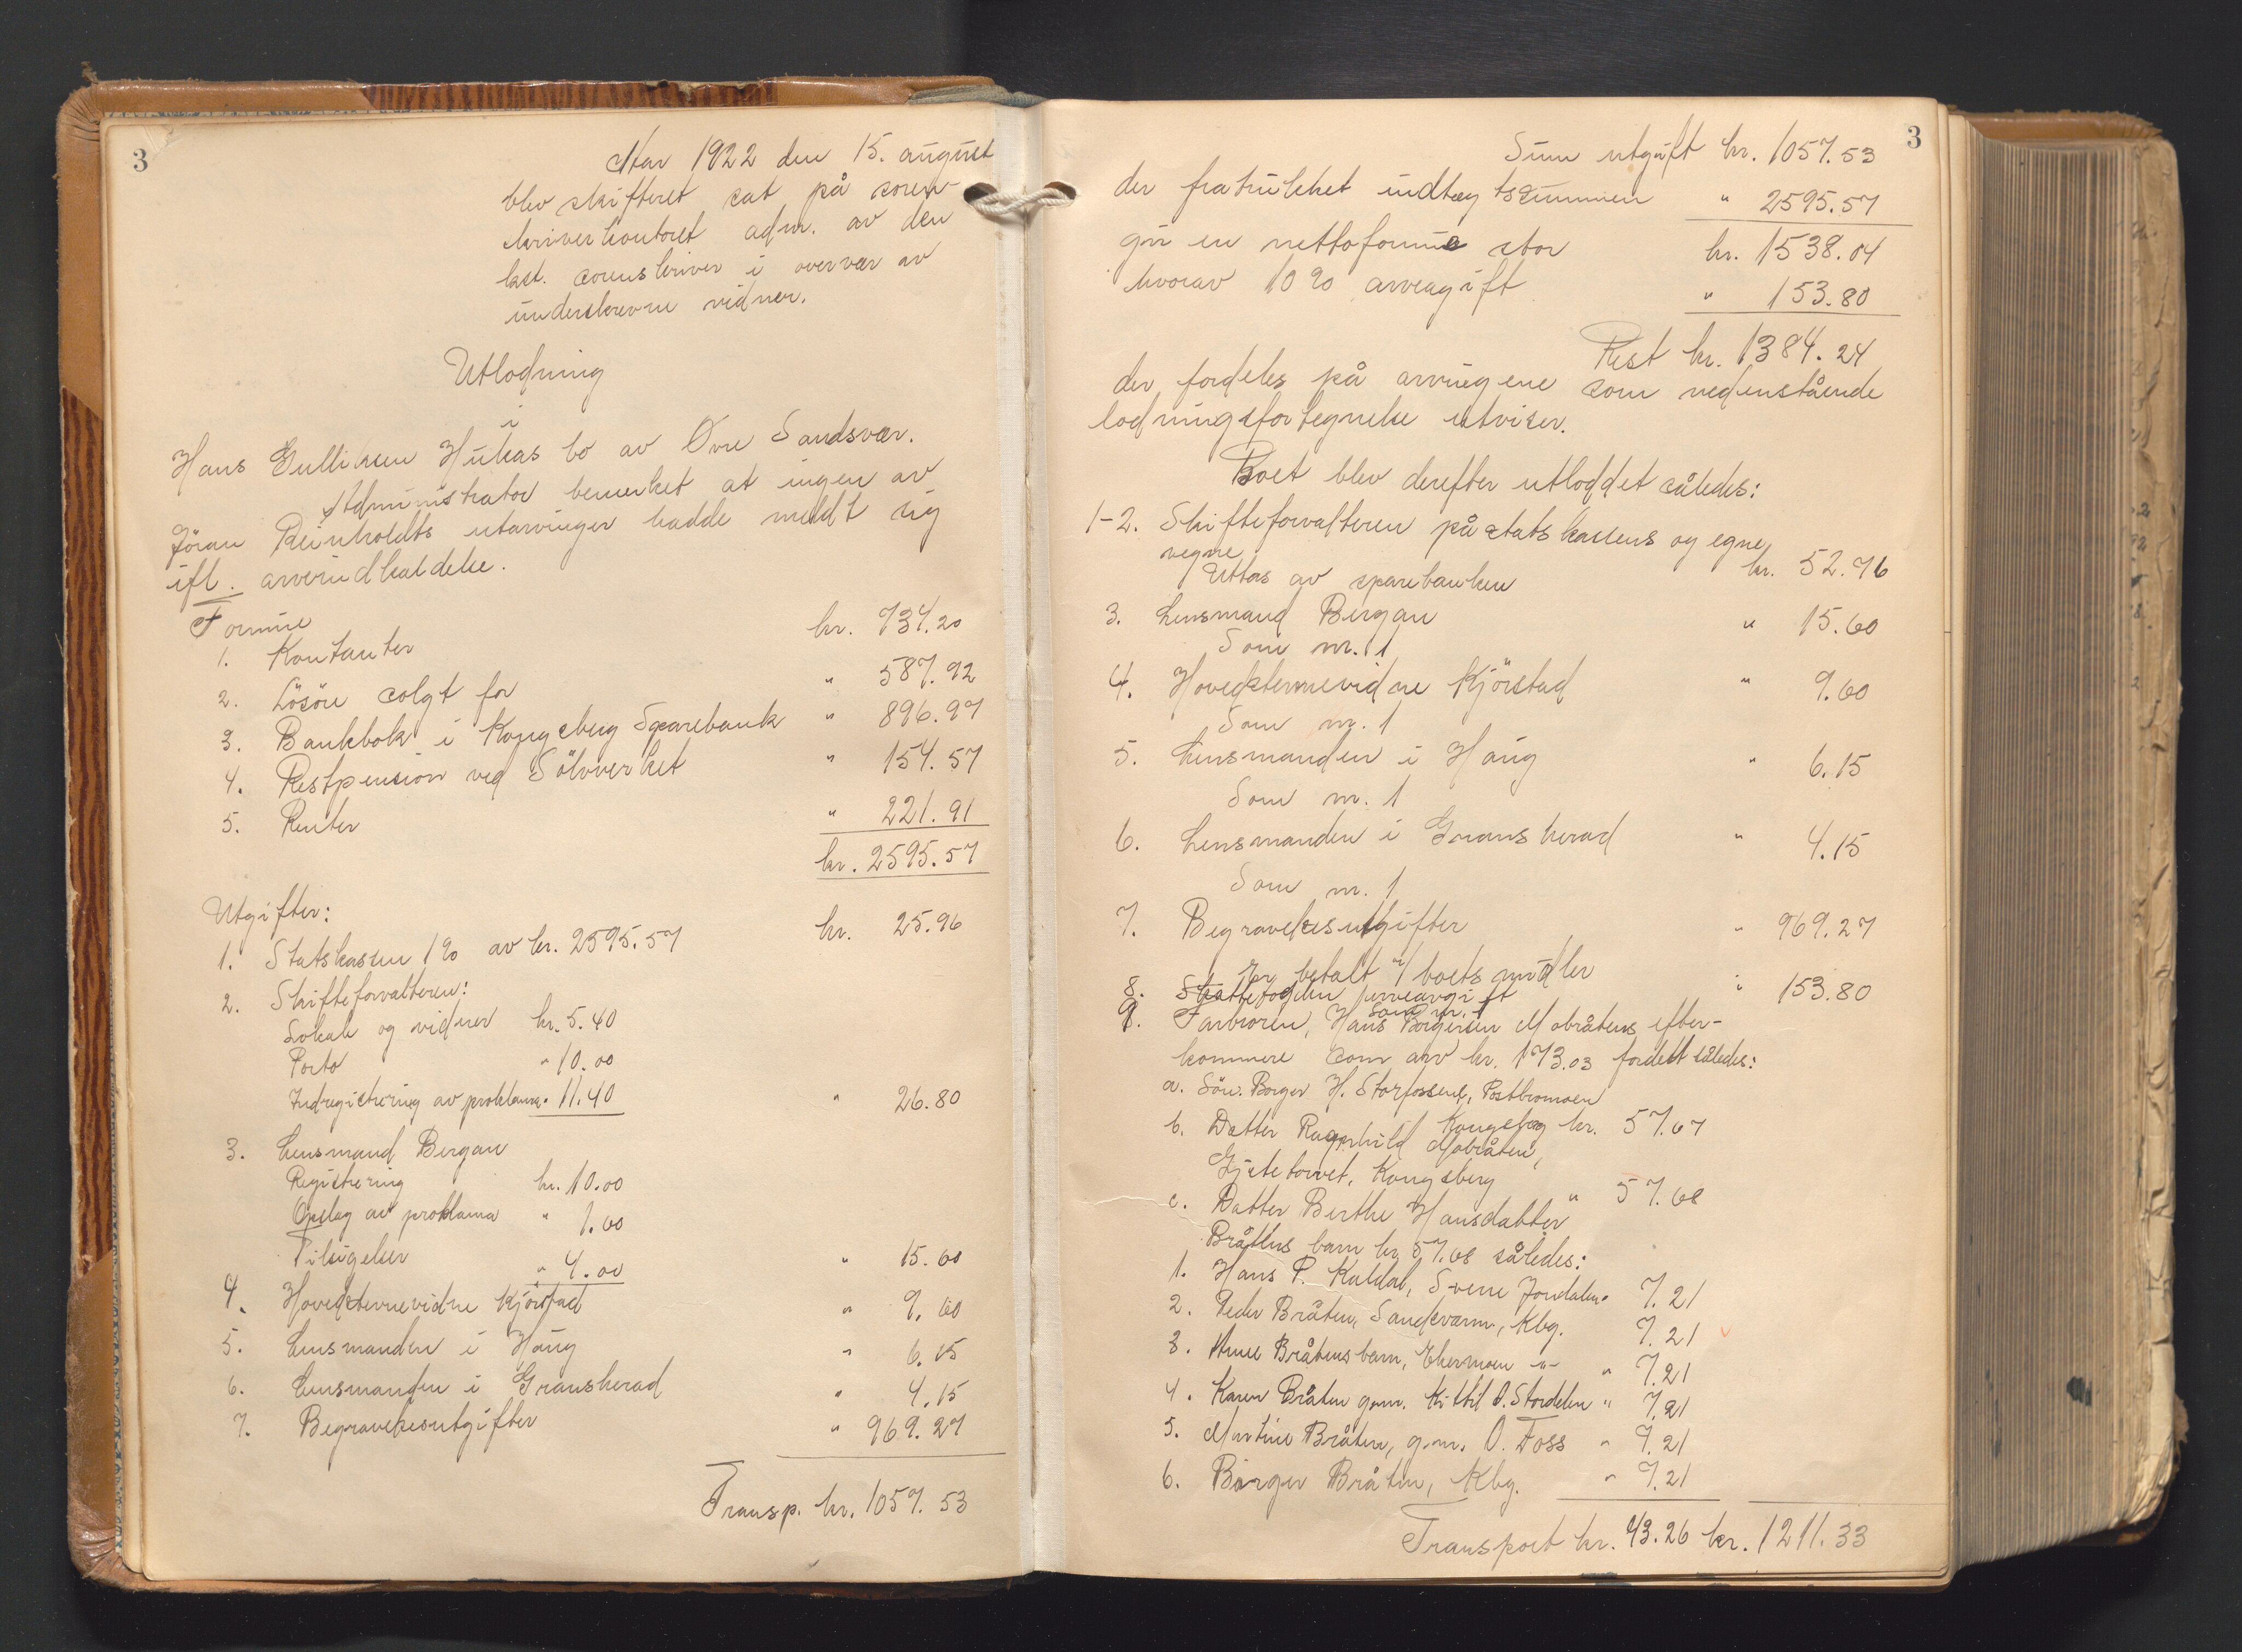 3
Aar 1922 den 15. august
blev skifteret sat på soren-
skriverkontoret adm. av den
kst. sorenskriver i overvær av
underskrevne vidner.
Utlodning
i
Hans Gulliksen Hukås bo av Øvre Sandsvær.
Administrator bemerket at ingen av
Jöran Reinholdts utarvinger hadde meldt sig
ifl. arveindkaldelse.
Formue
1. Kontanter kr. 734.20
2. Lösöre solgt for " 587.92
3. Bankbok i Kongsberg Sparebank " 896.97
4. Restpension ved Sölvverket " 154.57
5. Renter " 221.91
kr. 2595.57
Utgifter:
1. Statskassen 1% av kr. 2595.57 kr. 25.96
2. Skifteforvalteren:
Lokale og vidner kr. 5.40
Porto " 10.00
Indregistrering av proklama " 11.40 " 26.80
3. Lensmand Bergan
Registrering kr. 10.00
Opslag av proklama " 1.60
Tilsigelser " 4.00 " 15.60
4. Hovedstevnevidne Kjörstad " 9.60
5. Lensmanden i Haug " 6.15
6. Lensmanden i Gransherad " 4.15
7. Begravelsesutgifter " 969.27
Transp. kr. 1057.53
3
Sum utgift kr. 1057.53
der fratrukket indtægtssummen " 2595.57
gir en nettoformue stor kr. 1538.04
hvorav 10% arveavgift " 153.80
Rest kr. 1384.24
der fordeles på arvingene som nedenstående
lodningsfortegnelse utviser.
Boet blev derefter utloddet således:
1-2. Skifteforvalteren på statskassens og egne
vegne kr. 52.76
Uttas av sparebanken
3. Lensmand Bergan " 15.60
Som nr. 1
4. Hovedstevnevidne Kjörstad " 9.60
Som nr. 1
5. Lensmanden i Haug " 6.15
Som nr. 1
6. Lensmanden i Gransherad " 4.15
Som nr. 1
7. Begravelsesutgifter " 969.27
Er betalt av boets midler
8. Skattefogden arveavgift " 153.80
Som nr. 1
9. Farbroren, Hans Borgersen Mobråtens efter-
kommere som arv kr. 173.03 fordelt således:
a. Sön. Borger H. Storfossene, Postbromoen
Kongsberg kr. 57.67
b. Datter Ragnhild Mobråten,
Gjetetorvet, Kongsberg " 57.68
c. Datter Berthe Hansdatter
Bråtens barn kr. 57.68 således:
1. Hans P. Kaldal, Svene Jondalen " 7.21
2. Peder Bråten, Sandsværm, Kbg. 7.21
3. Anne Bråtens barn, Ekermoen -"- " 7.21
4. Karen Bråten g.m. Kittil O. Stordalen " 7.21
5. Martine Bråten, g.m. O. Foss " 7.21
6. Börger Bråten, Kbg. " 7.21
Transport kr. 43.26 kr. 1211.33